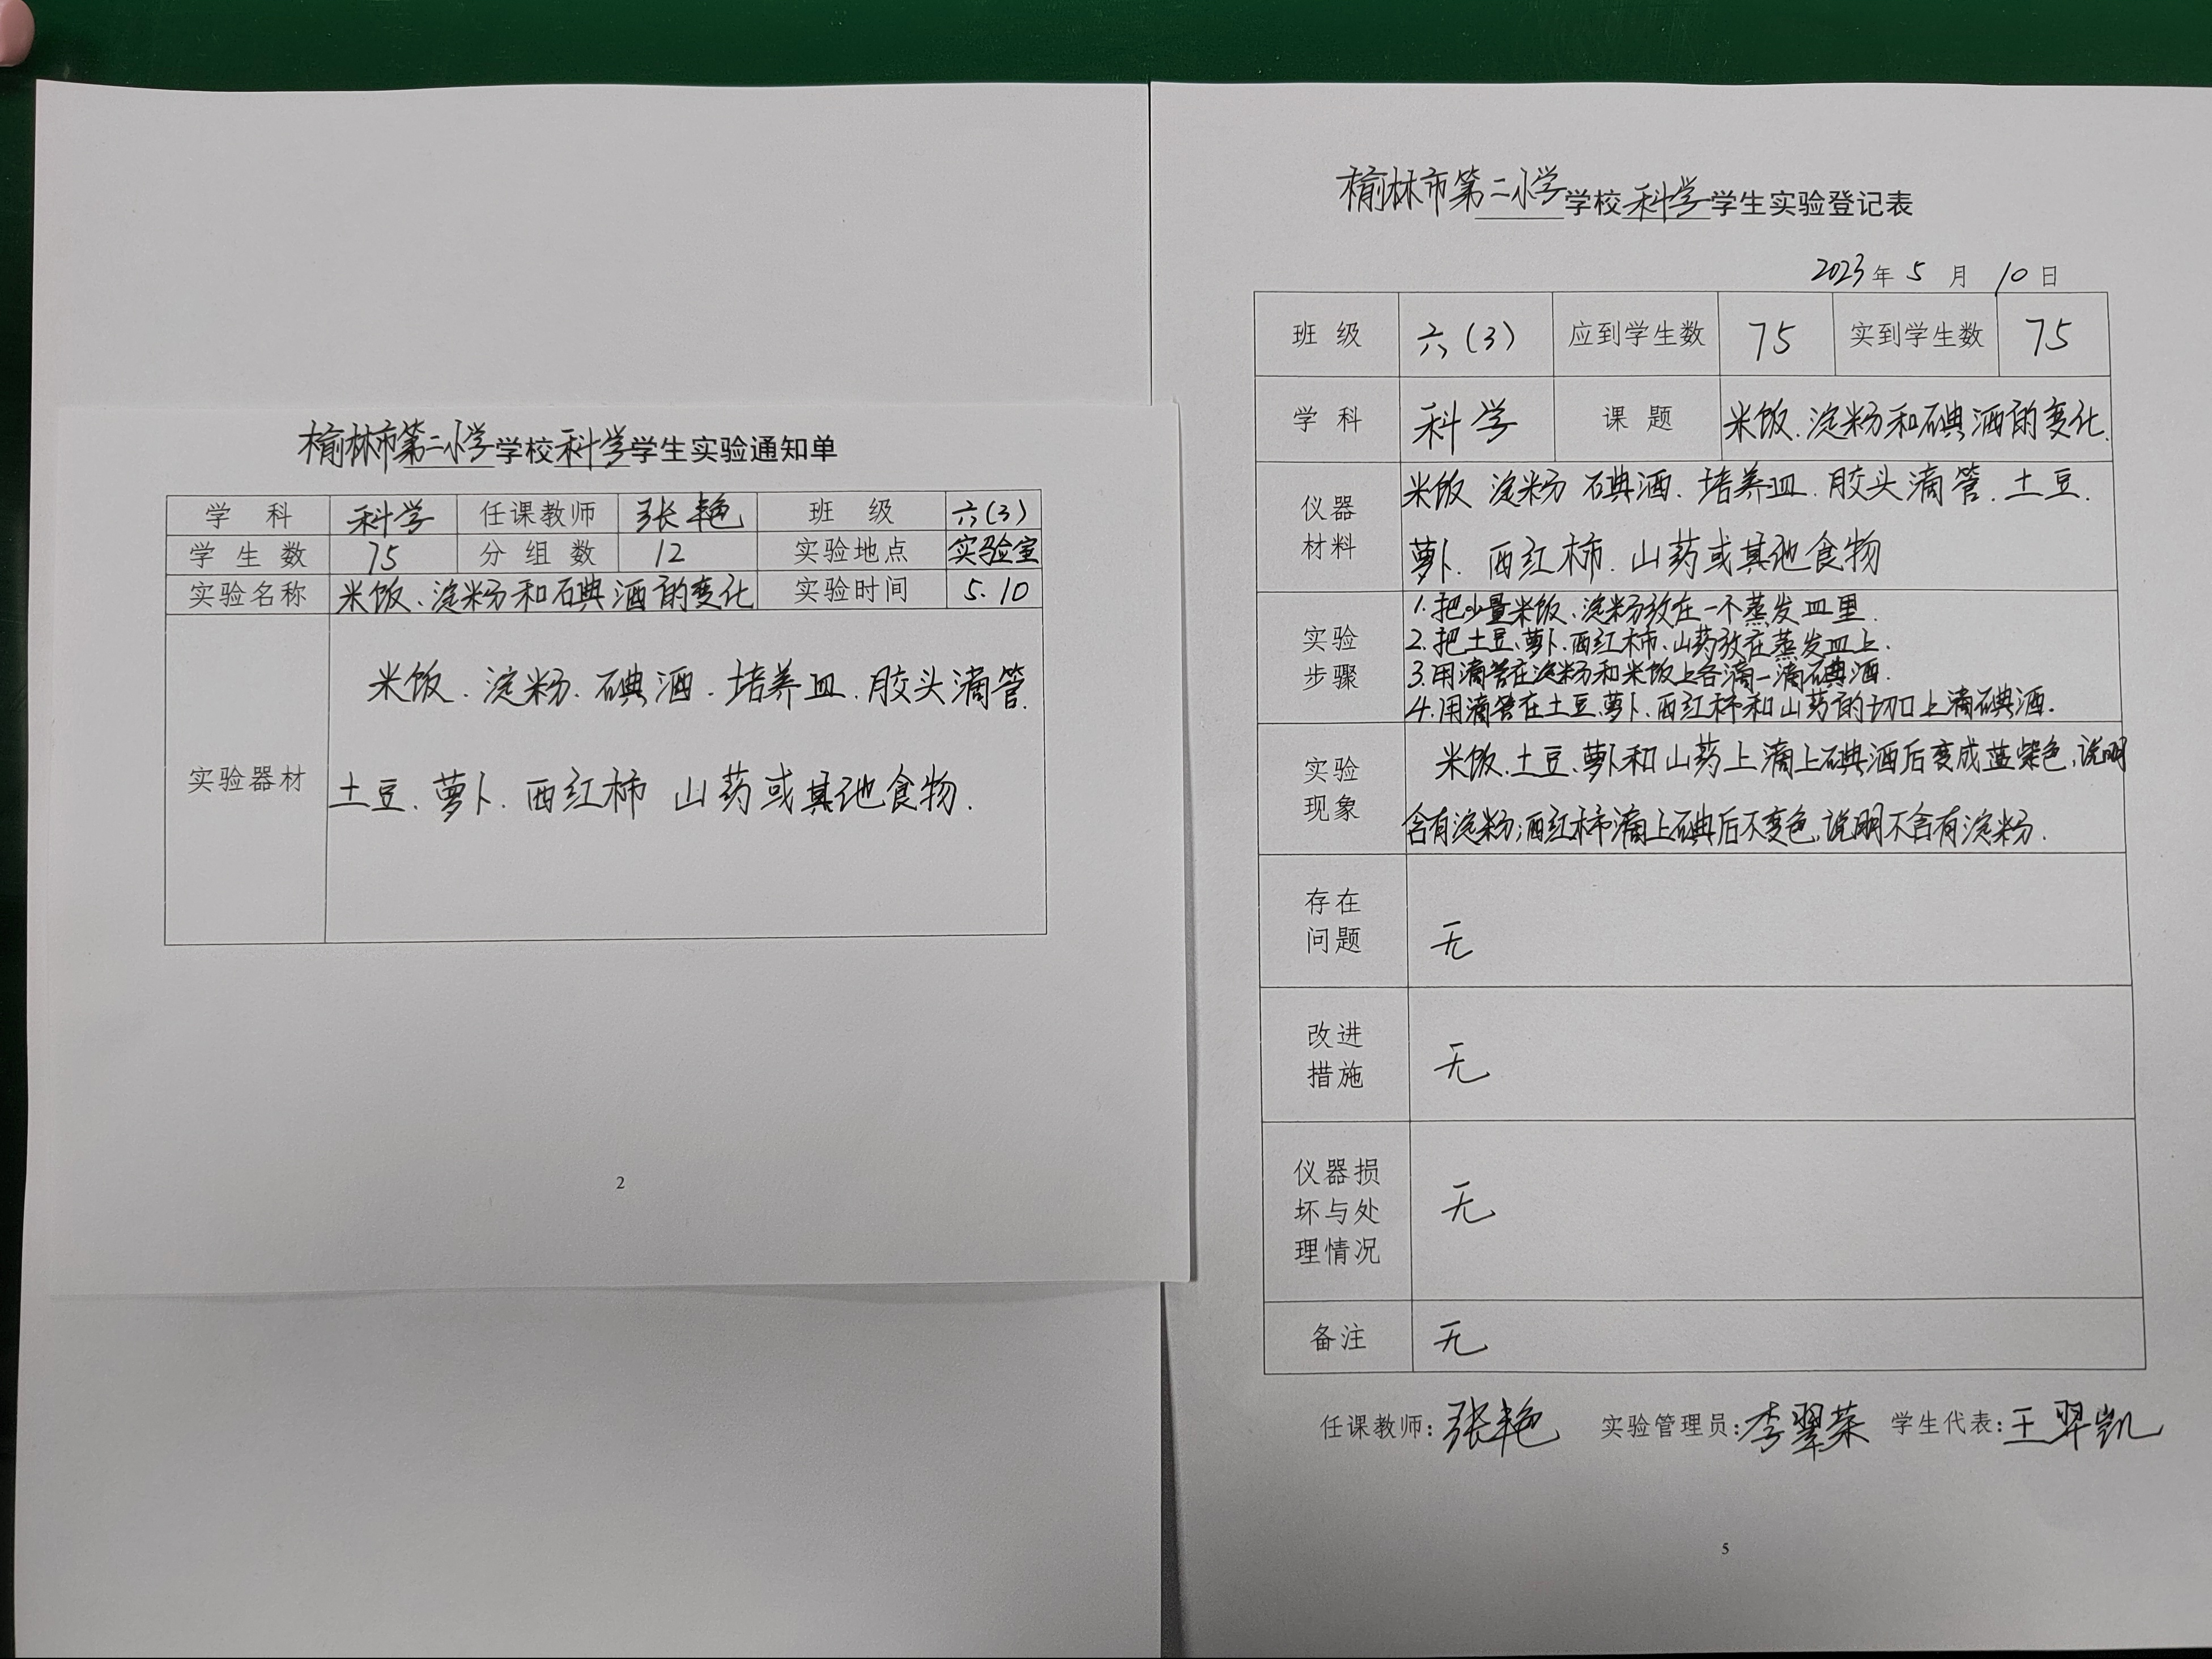 榆林市第二小学学校科学学生实验通知单
学 科 科学 任课教师 张艳 班 级 六(3)
学生数 75 分组数 12 实验地点 实验室
实验名称 米饭、淀粉和碘酒的变化 实验时间 5.10
实验器材
米饭.淀粉.碘酒.培养皿.胶头滴管.
土豆.萝卜.西红柿 山药或其他食物.
2
榆林市第二小学学校科学学生实验登记表
2023年5月10日
班 级 六(3) 应到学生数 75 实到学生数 75
学 科 科学 课 题 米饭.淀粉和碘酒的变化.
仪器
材料
米饭 淀粉 碘酒.培养皿.胶头滴管.土豆.
萝卜.西红柿.山药或其他食物
实验
步骤
1.把少量米饭、淀粉放在一个蒸发皿里.
2.把土豆、萝卜.西红柿、山药放在蒸发皿上.
3.用滴管在淀粉和米饭上各滴一滴碘酒.
4.用滴管在土豆、萝卜、西红柿和山药的切口上滴碘酒.
实验
现象
米饭.土豆、萝卜和山药上滴上碘酒后变成蓝紫色,说明
含有淀粉;西红柿滴上碘后不变色,说明不含有淀粉.
存在
问题
无
改进
措施
无
仪器损
坏与处
理情况
无
备注 无
任课教师:张艳 实验管理员:李翠荣 学生代表:王羿凯
5